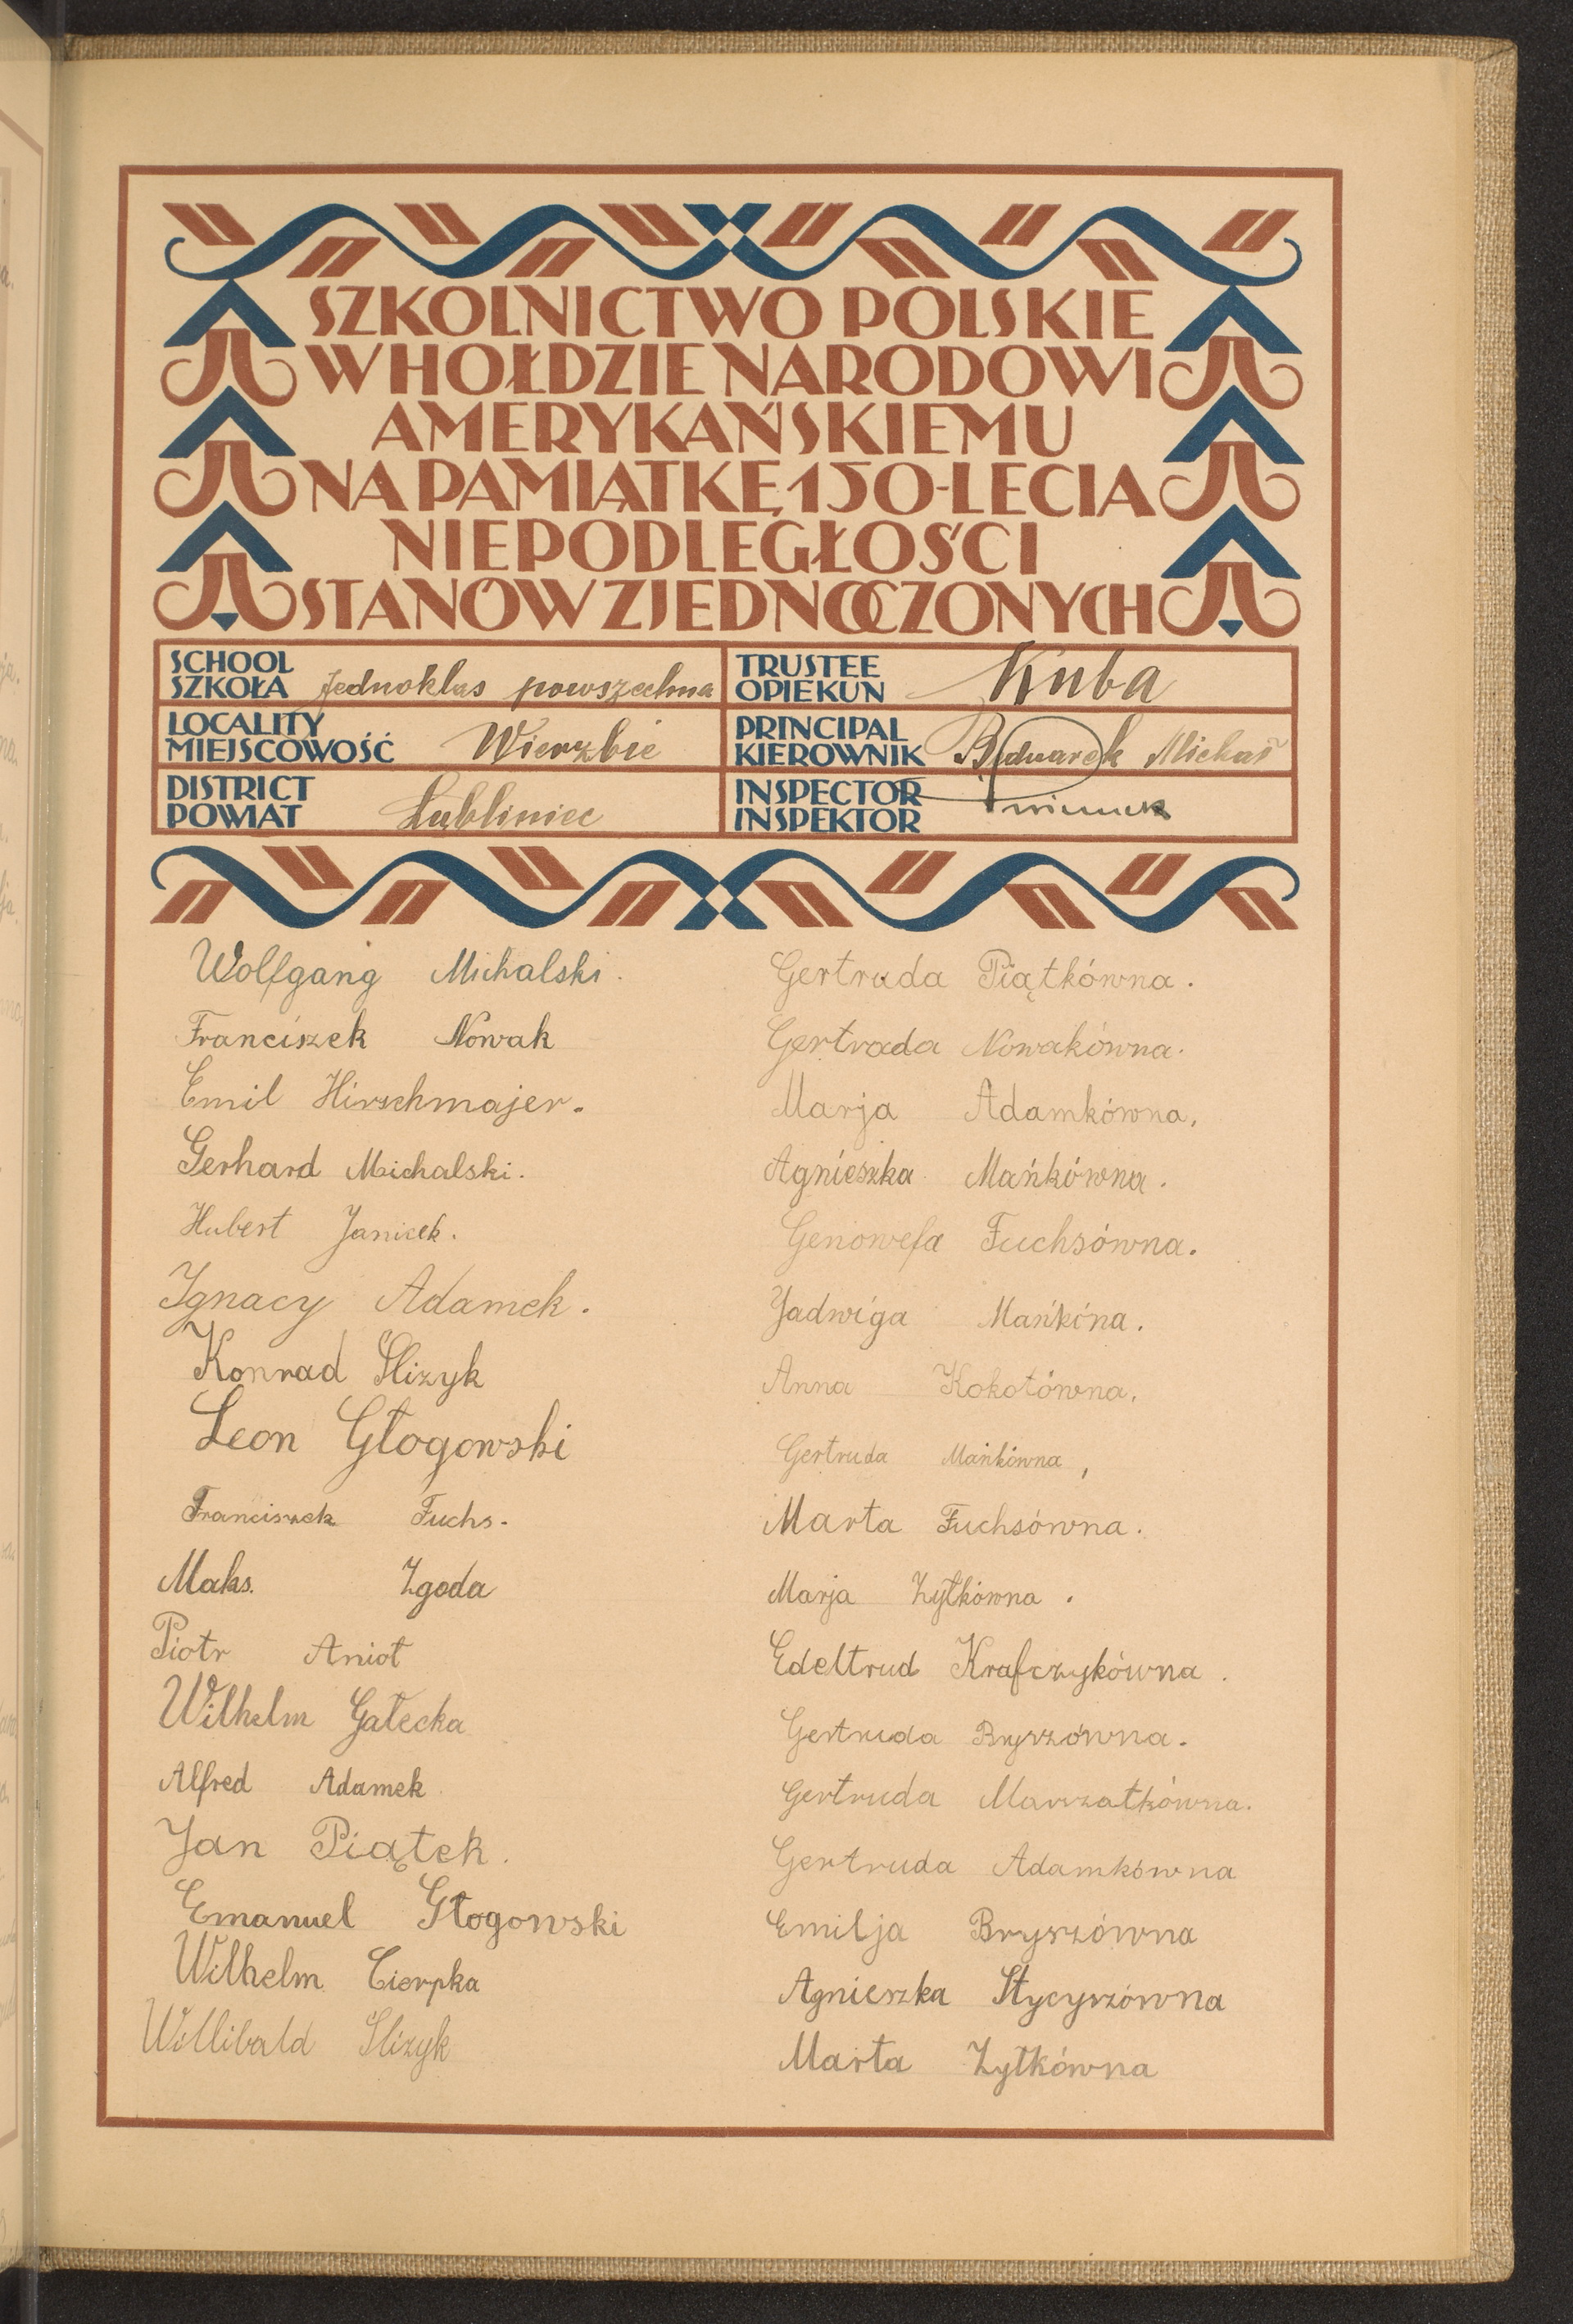 SZKOLNICTWO POLSKIE
W HOŁDZIE NARODOWI
AMERYKAŃSKIEMU
NA PAMIĄTKĘ 150-LECIA
NIEPODLEGŁOŚCI
STANÓW ZJEDNOCZONYCH
SCHOOL
SZKOŁA Jednoklas powszechna
TRUSTEE
OPIEKUN Kuba
LOCALITY
MIEJSCOWOŚĆ Wierzbie
PRINCIPAL
KIEROWNIK Bednarek Michał
DISTRICT
POWIAT Lubliniec
INSPECTOR
INSPEKTOR
Wolfgang Michalski.
Franciszek Nowak
Emil Hirschmajer.
Gerhard Michalski.
Hubert Janicek.
Ignacy Adamek.
Konrad Ślizyk
Leon Głogowski
Franciszek Fuchs.
Maks. Zgoda
Piotr Anioł
Wilhelm Gałecka
Alfred Adamek
Jan Piątek.
Emanuel Głogowski
Wilhelm Cierpka
Willibald Ślizyk
Gertruda Piątkówna.
Gertrada Nowakówna.
Marja Adamkówna,
Agnieszka Mańkówna.
Genowefa Fuchsówna.
Jadwiga Mańkóna.
Anna Kokotówna.
Gertruda Mańkówna,
Marta Fuchsówna.
Marja Zyłkówna.
Edeltrud Krafczykówna.
Gertruda Bryszówna.
Gertruda Marszałkówna.
Gertruda Adamkówna
Emilja Bryszówna
Agnieszka Stycyszówna
Marta Zyłkówna